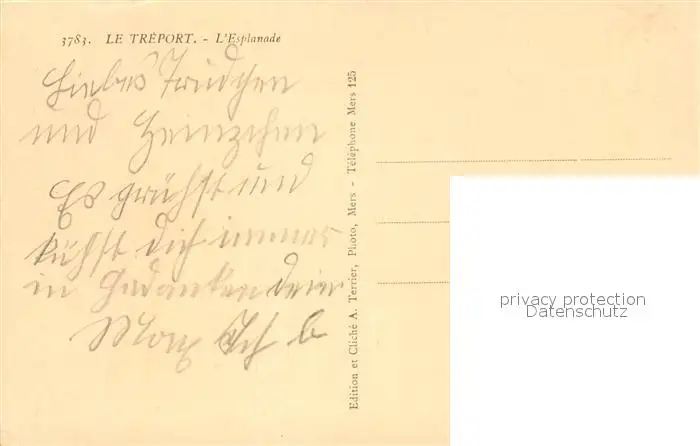 3783. LE TRÉPORT. - L'Esplanade
Liebes Trudchen
und Heinzchen
Es grühst und
kühst dich immer
in Gedanken dein
Max Ich b
Edition et Cliché A. Terrier, Photo, Mers - Téléphone Mers 125
privacy protection
Datenschutz